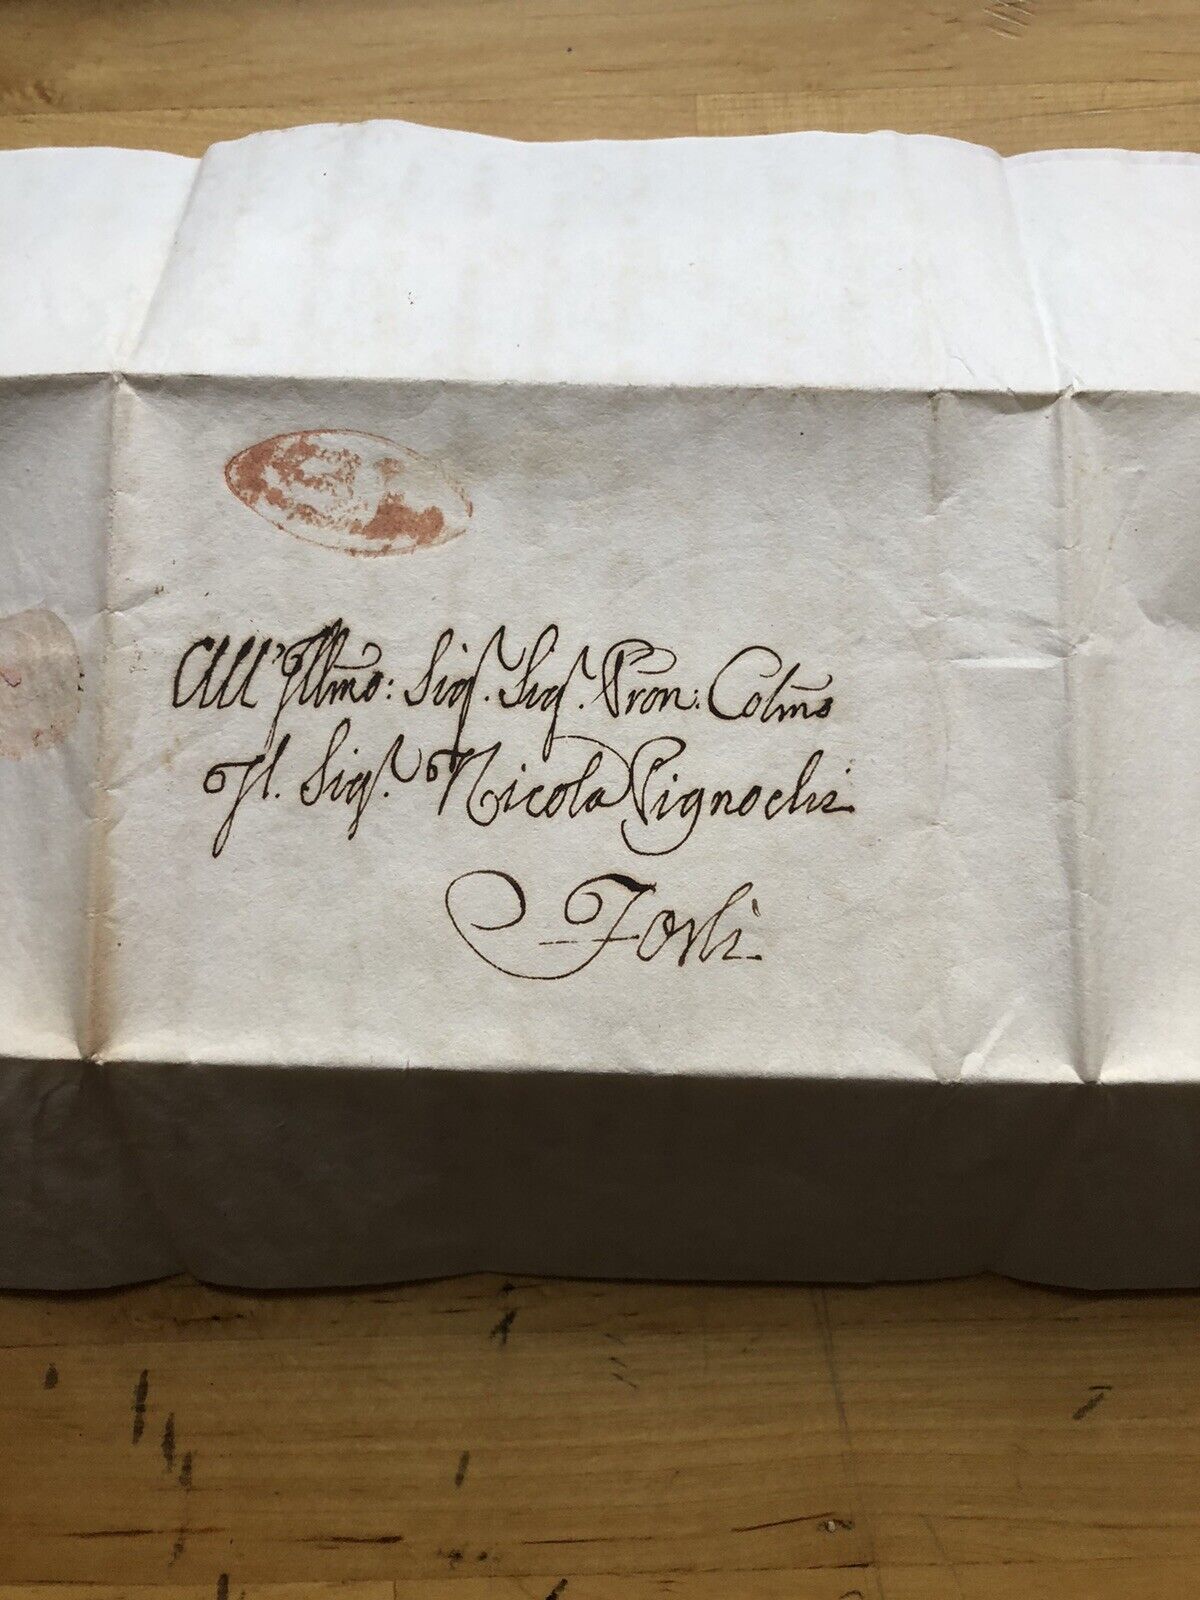 All' Illmo: Sig. Sig. Pron: Colmo
Il Sig. Nicola Pignochi
Forlì